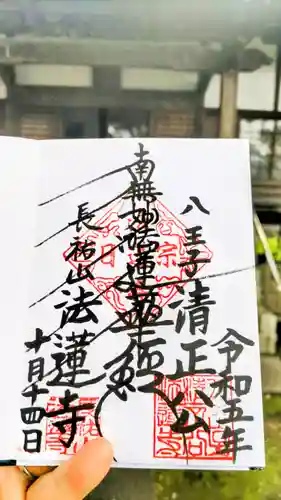 八王子
清正公
令和五年
南無妙法蓮華経
長祐山
法蓮寺
十月十四日